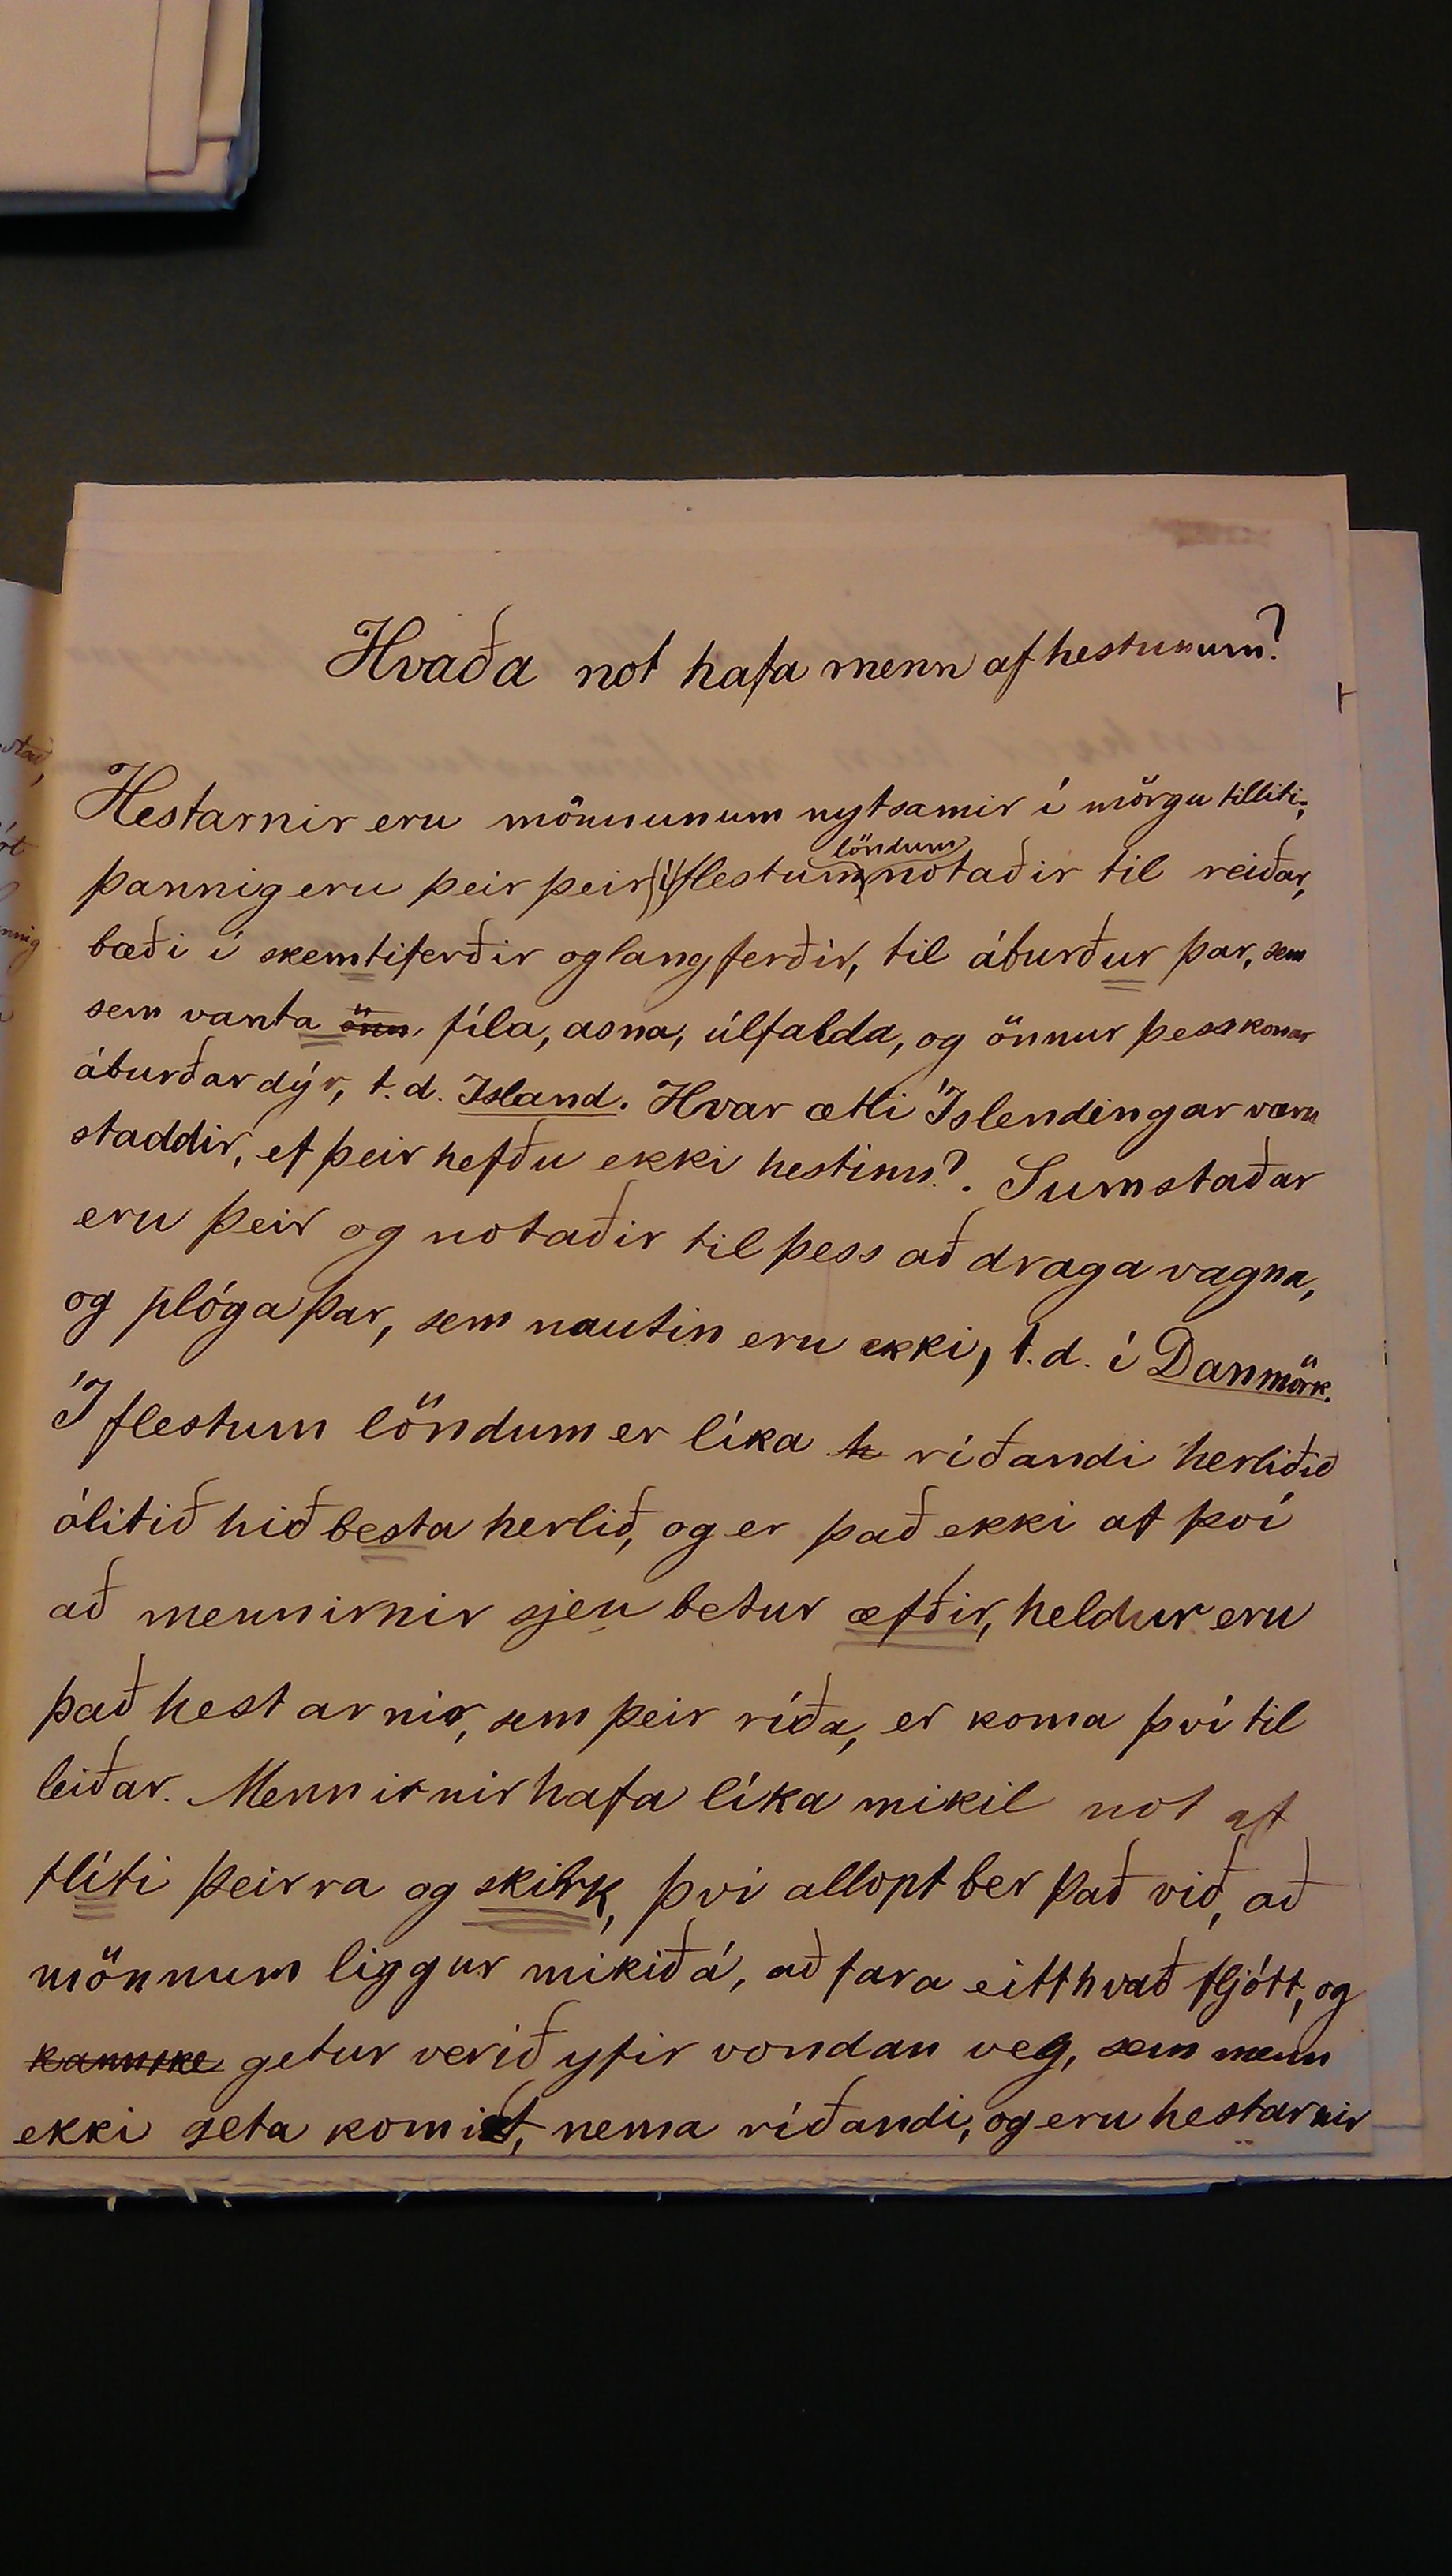 Hvaða not hafa menn af hestunum?
Hestarnir eru mönnunum nytsamir í mörgu tilliti;
þannig eru þeir þeir í flestum löndum notaðir til reiðar,
bæði í skemtiferðir og langferðir, til áburður þar, sem
sem vanta önn, fíla, asna, úlfalda, og önnur þesskonar
áburðardýr, t.d. Island. Hvar ætli Íslendingar væru
staddir, ef þeir hefðu ekki hestinn?. Sumstaðar
eru þeir og notaðir til þess að draga vagna,
og plóga þar, sem nautin eru ekki, t.d. í Danmörk.
Í flestum löndum er líka h ríðandi herliðið
álitið hið besta herlið, og er það ekki af því
að mennirnir sjeu betur æfðir, heldur eru
það hestarnir, sem þeir ríða, er koma því til
leiðar. Mennirnir hafa líka mikil not af
flíti þeirra og skilrk, því allopt ber það við, að
mönnum liggur mikið á, að fara eitthvað fljótt, og
kannske getur verið yfir vondan veg, sem menn
ekki geta komist, nema ríðandi, og eru hestarnir